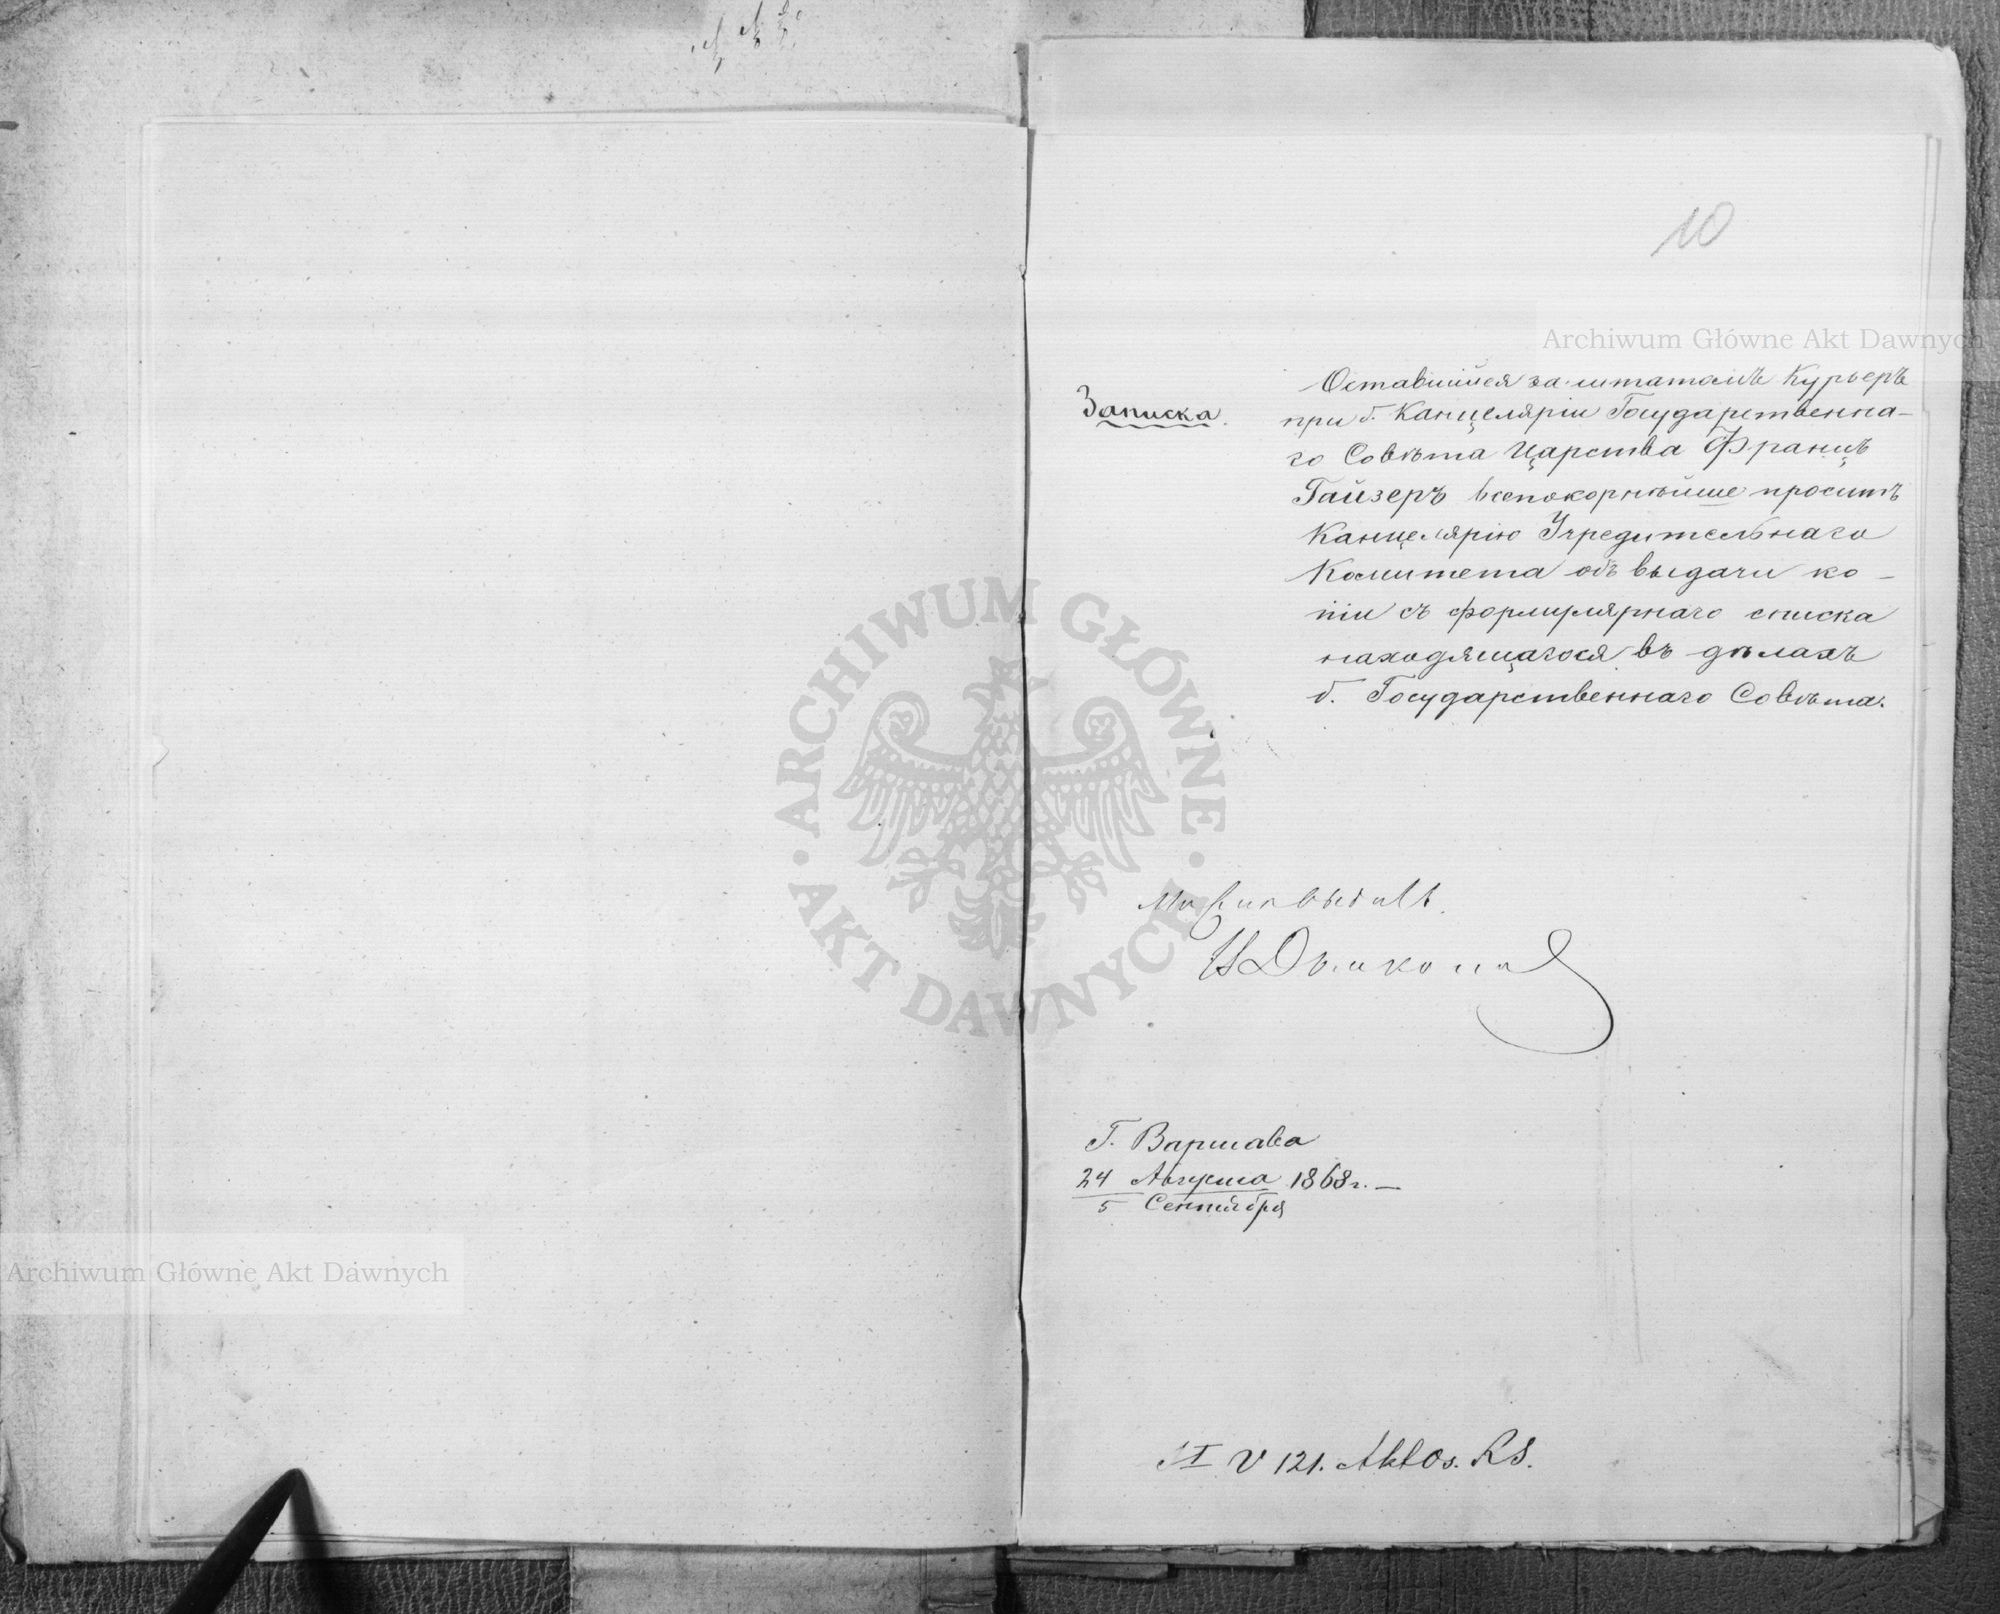 10
Archiwum Główne Akt Dawnych
Записка.
Оставшійся за штатомъ Курьеръ
при б. Канцеляріи Государственна-
го Совѣта Царства Францъ
Гайзеръ всепокорнѣйше проситъ
Канцелярію Учредительнаго
Комитета объ выдачи ко-
піи съ формулярнаго списка
находящагося въ дѣлахъ
б. Государственнаго Совѣта.
ARCHIWUM GŁÓWNE
AKT DAWNYCH
Г. Варшава
24 Августа 1868 г. —
5 Сентября
Archiwum Główne Akt Dawnych
V 121. Akt Os. RS.